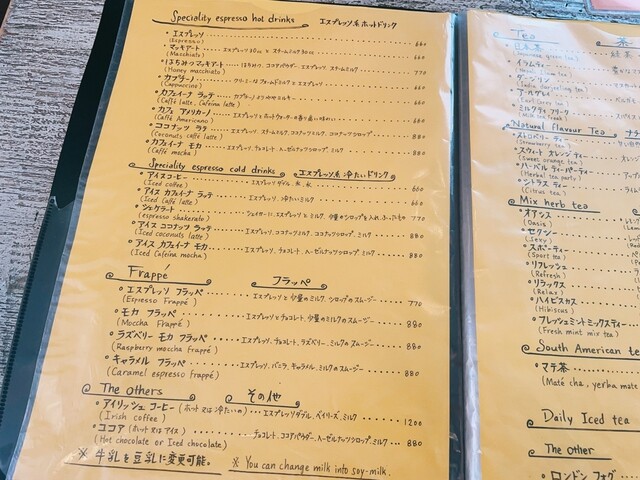 Speciality espresso hot drinks エスプレッソ系ホットドリンク
エスプレッソ 660
(Espresso)
マッキアート エスプレッソ30ccとスチームミルク30cc 660
(Macchiato)
はちみつマッキアート はちみつ、ココアパウダー、エスプレッソ、スチームミルク 770
(Honey macchiato)
カプチーノ クリーミーなフォームドミルクとエスプレッソ 660
(Cappuccino)
カフェイーナ ラッテ カプチーノよりややミルキー 660
(Caffé latte, Cafeina latte)
カフェ アメリカーノ エスプレッソとホットウォーターの香り高い味わい 660
(Caffé Americano)
ココナッツ ラテ エスプレッソ、スチームミルク、ココナッツミルク、ココナッツシロップ 880
(Coconuts caffé latte)
カフェイーナ モカ エスプレッソ、チョコレート、ヘーゼルナッツシロップ、ミルク 880
(Caffé mocha)
Speciality espresso cold drinks エスプレッソ系冷たいドリンク
アイスコーヒー エスプレッソダブル、水、氷 660
(Iced coffee)
アイス カフェイーナ ラッテ エスプレッソ、冷たいミルク 660
(Iced caffé latte)
シェケラート シェイカーに、エスプレッソとミルク、少量のシロップを入れ、ふったもの 770
(espresso shakerato)
アイス ココナッツ ラッテ エスプレッソ、ココナッツミルク、ココナッツシロップ、ミルク 880
(Iced coconuts latte)
アイス カフェイーナ モカ エスプレッソ、チョコレート、ヘーゼルナッツシロップ、ミルク 880
(Iced Cafeina mocha)
Frappé フラッペ
エスプレッソ フラッペ エスプレッソと少量のミルク、シロップのスムージー 770
(Espresso Frappé)
モカ フラッペ エスプレッソとチョコレート、少量のミルクのスムージー 880
(Moccha Frappé)
ラズベリー モカ フラッペ エスプレッソ、チョコレート、ラズベリー、ミルクのスムージー 880
(Raspberry mocha frappé)
キャラメル フラッペ エスプレッソ、バニラ、キャラメル、ミルクのスムージー 880
(Caramel espresso frappé)
The others その他
アイリッシュ コーヒー (ホット又は冷たいの) エスプレッソダブル、ベイリーズ、ミルク 1200
(Irish coffee)
ココア (ホット又はアイス) チョコレート、ココアパウダー、ヘーゼルナッツシロップ、ミルク 880
(Hot chocolate or Iced chocolate)
※ 牛乳を豆乳に変更可能。 ※ You can change milk into soy-milk.
Tea 茶
日本茶 緑茶
(Japanese green tea)
Natural flavour Tea
ストロベリー ティー
(Strawberry tea)
スウィート オレンジティー
(Sweet orange tea)
ハーバル ティーパーティー
(Herbal tea party)
シトラス ティー
(Citrus tea)
Mix herb tea
オアシス
(Oasis)
セクシー
(Sexy)
スポーティー
(Sport tea)
リフレッシュ
(Refresh)
リラックス
(Relax)
ハイビスカス
(Hibiscus)
フレッシュミントミックスティー
(Fresh mint mix tea)
South American tea
マテ茶
(Maté cha, yerba mate
Daily Iced tea
The other
ロンドン フォグ